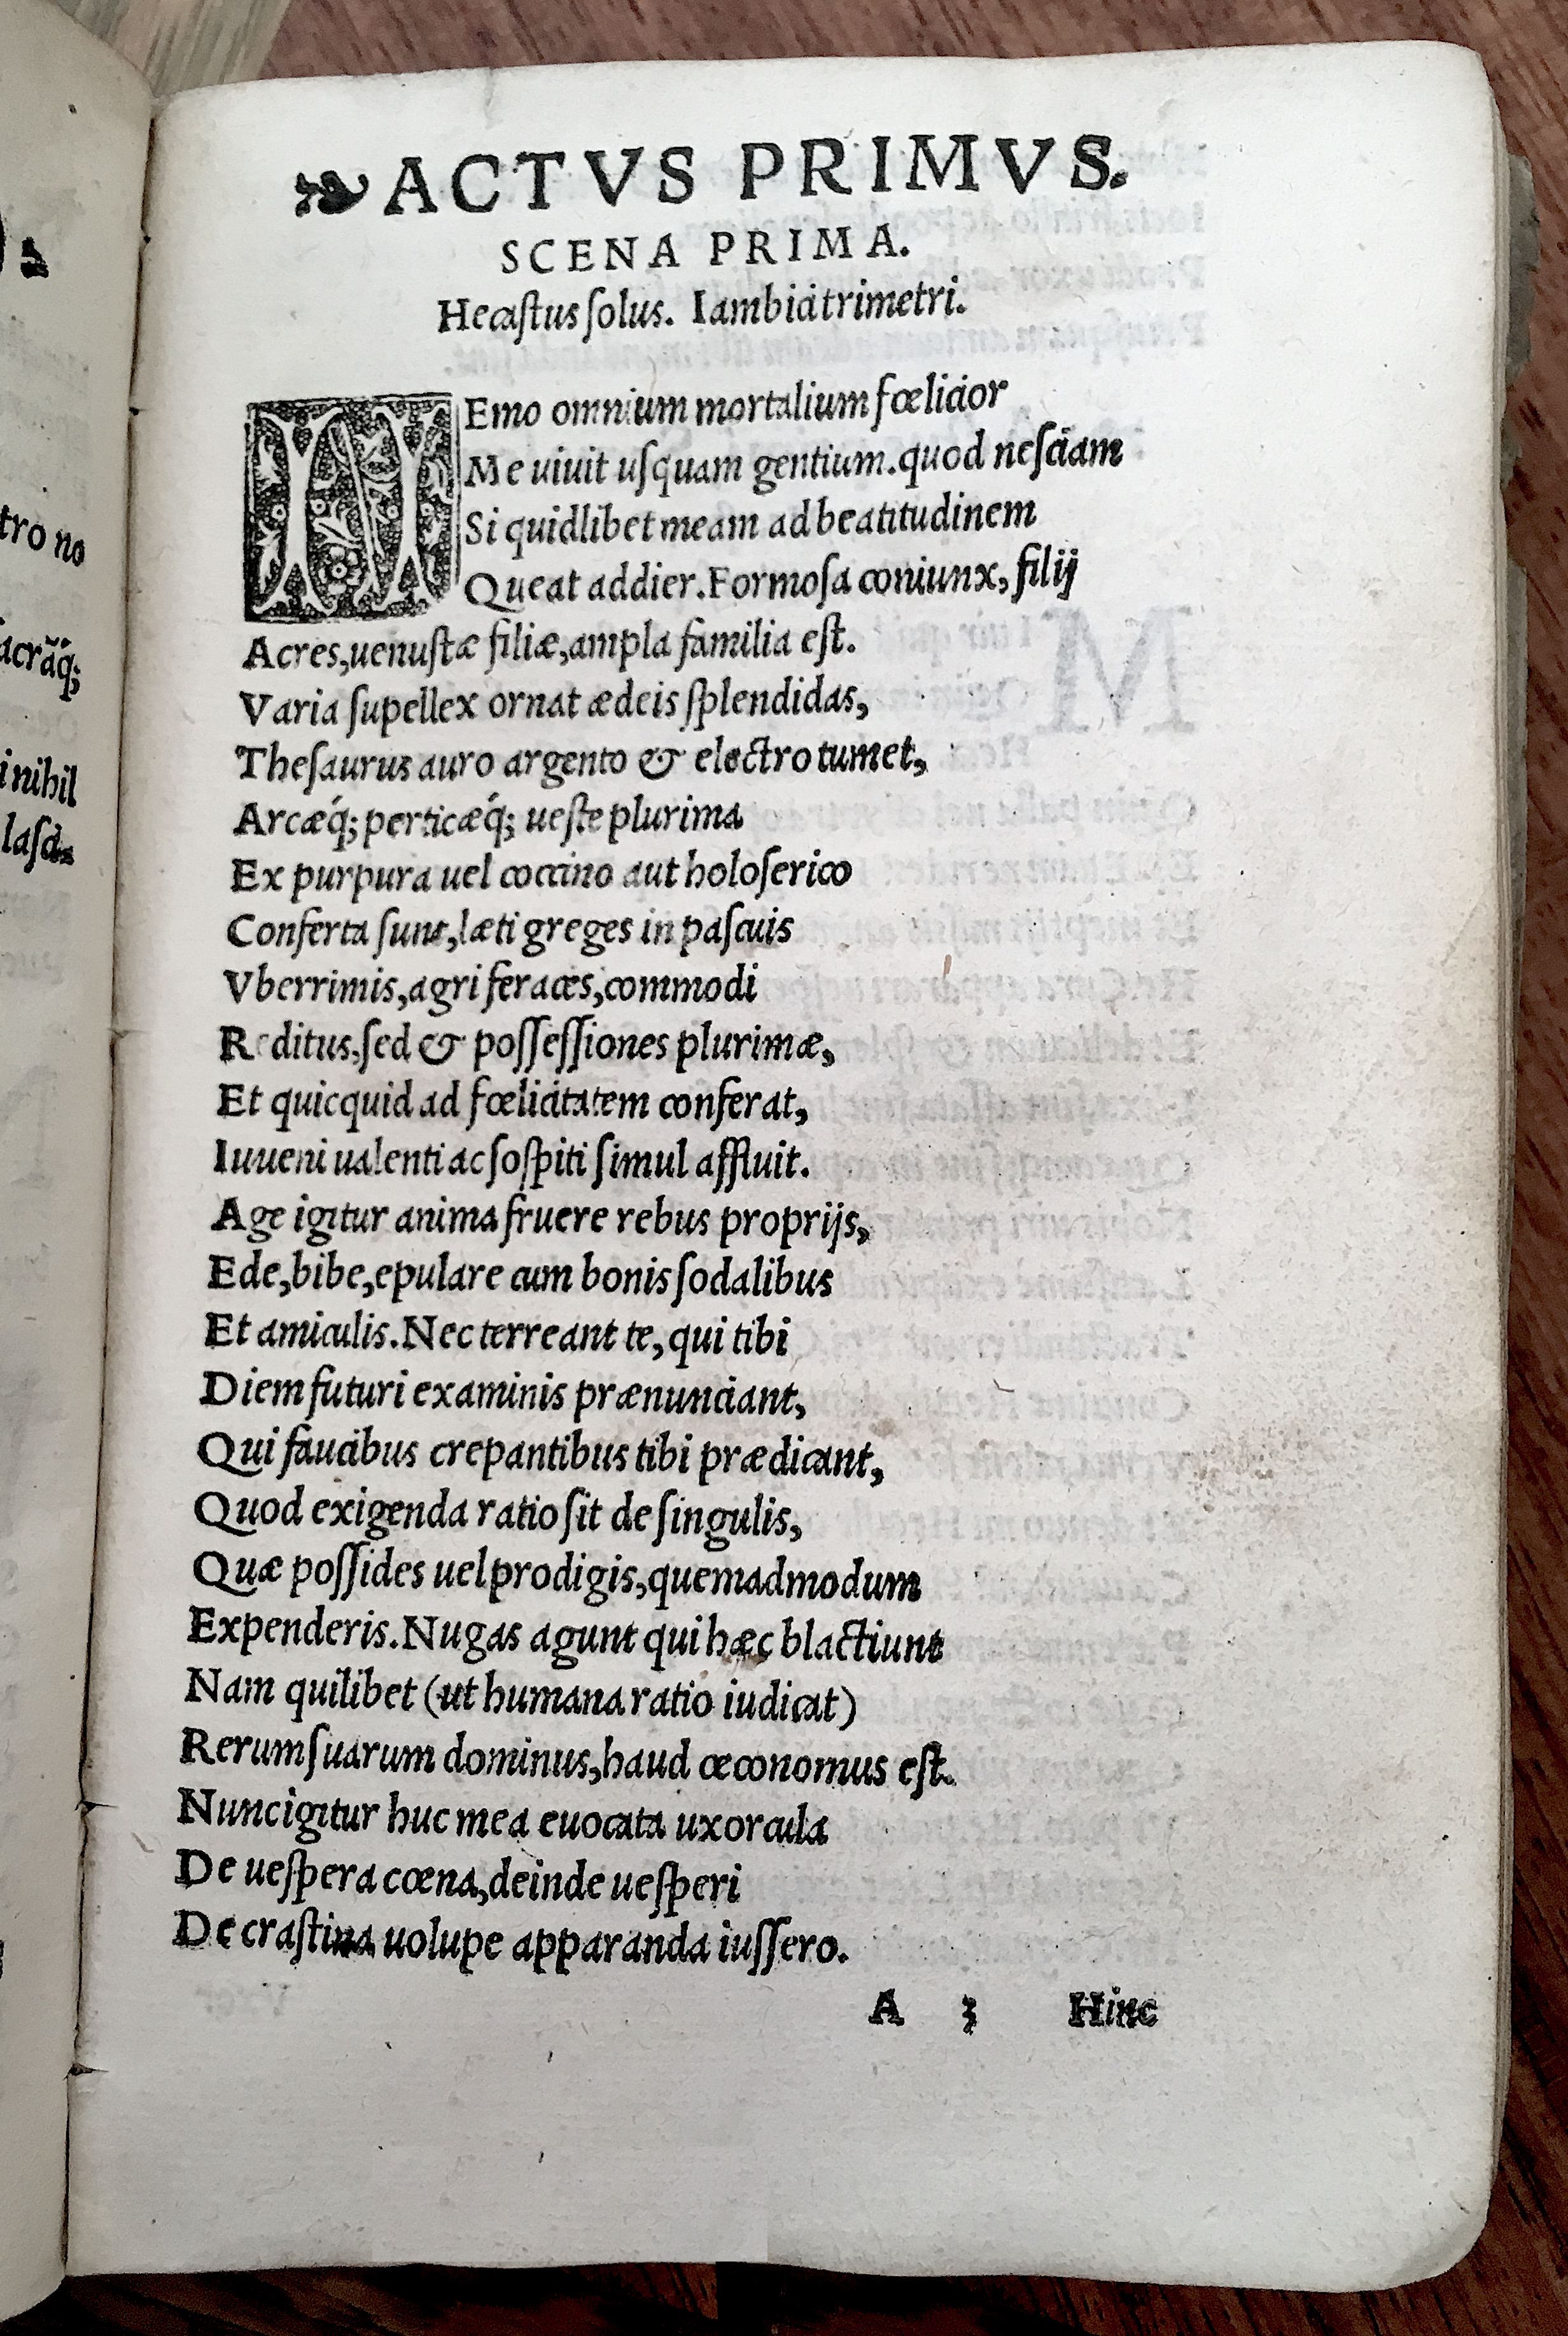 ❧ ACTVS PRIMVS.
SCENA PRIMA.
Hecaſtus ſolus. Iambici trimetri.
NEmo omnium mortalium fœlicior
Me uiuit uſquam gentium. quod neſciam
Si quidlibet meam ad beatitudinem
Queat addier. Formoſa coniunx, filij
Acres, uenuſtæ filiæ, ampla familia eſt.
Varia ſupellex ornat ædeis ſplendidas,
Theſaurus auro argento & electro tumet,
Arcæq́; perticæq́; ueſte plurima
Ex purpura uel coccino aut holoſerico
Conferta ſunt, læti greges in paſcuis
Vberrimis, agri feraces, commodi
Reditus, ſed & poſſeſſiones plurimæ,
Et quicquid ad fœlicitatem conferat,
Iuueni ualenti ac ſoſpiti ſimul affluit.
Age igitur anima fruere rebus proprijs,
Ede, bibe, epulare cum bonis ſodalibus
Et amiculis. Nec terreant te, qui tibi
Diem futuri examinis prænunciant,
Qui faucibus crepantibus tibi prædicant,
Quod exigenda ratio ſit de ſingulis,
Quæ poſſides uel prodigis, quemadmodum
Expenderis. Nugas agunt qui hæc blactiunt
Nam quilibet (ut humana ratio iudicat)
Rerum ſuarum dominus, haud œconomus eſt.
Nunc igitur huc mea euocata uxorcula
De ueſpera cœna, deinde ueſperi
De craſtina uolupe apparanda iuſſero.
A 3 Hinc
tro no
acrāq́;
i nihil
laſci-